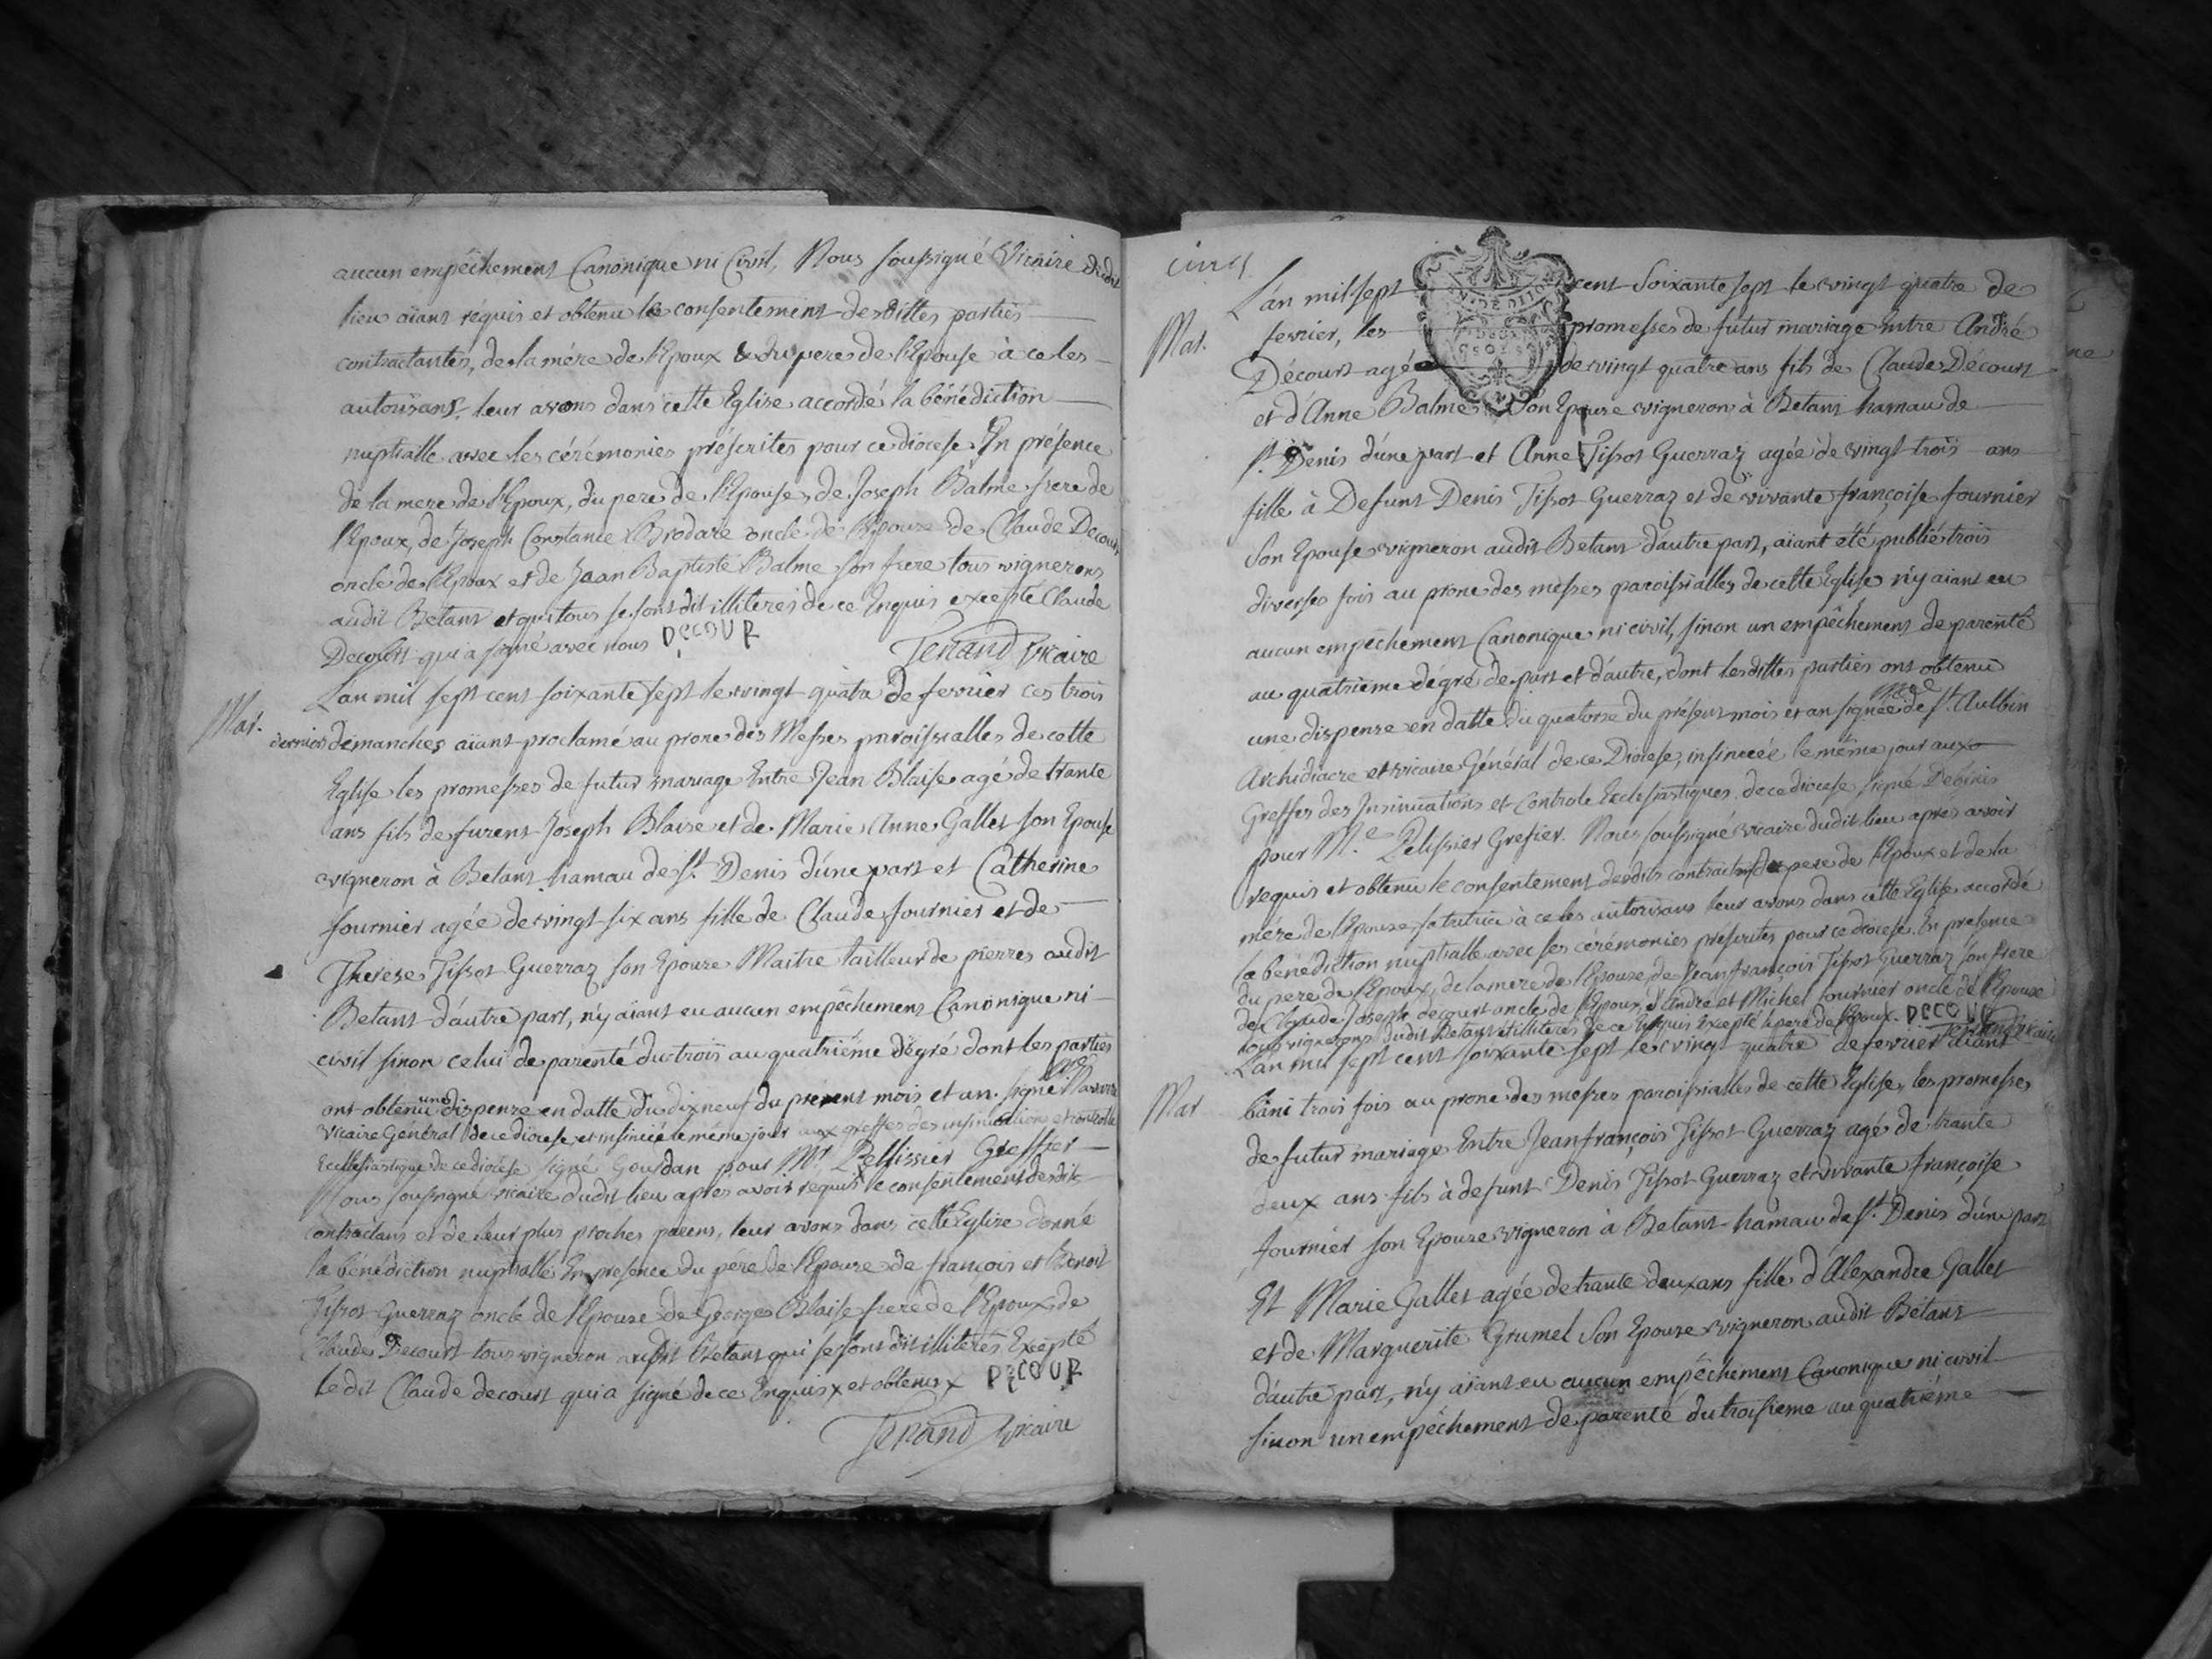 aucun empêchement Canonique ni Civil, Nous soussigné Vicaire dudit
lieu aiant réquis et obtenu le consentement desdittes parties
contractantes, de la mére de l'Epoux & du pere de l'Epouse à ce les
autorisant, leur avons dans cette Eglise accordé la bénédiction
nuptialle avec les cérémonies préscrites pour ce diocese En présence
de la mere de l'Epoux, du pere de l'Epouse, de Joseph Balme frere de
l'Epoux, de Joseph Constance Brodare oncle de l'Epouse de Claude Decour
oncle de l'Epoux et de Jean Baptiste Balme son frere tous vignerons
audit Betant et qui tous se sont dit illiterés de ce Enquis excepté Claude
Decourt qui a signé avec nous DECOUR
Ferrand Vicaire
Mar.
L'an mil sept cent soixante sept le vingt quatre de fevrier ces trois
derniers dimanches aiant proclamé au prone des Messes paroissialles de cette
Eglise les promesses de futur mariage Entre Jean Blaise agé de trante
ans fils de furent Joseph Blaise et de Marie Anne Gallet son Epouse
vigneron à Betant hamau de St. Denis d'une part et Catherine
fournier agée de vingt six ans fille de Claude fournier et de
Therese Tissot Guerraz son Epouse Maitre tailleur de pierres audit
Betant d'autre part, n'y aiant eu aucun empêchement Canonique ni
civil sinon celui de parenté du trois au quatriéme dégré dont les parties
ont obtenu une dispense en datte du dixneuf du présent mois et an. signé
Vicaire Général de ce diocese et insinuée le même jour aux greffes des insinuations et controlle
Ecclesiastique de ce diocése signé Gourdan pour Mr. Pellissier Greffier
Nous soussigné vicaire dudit lieu aprés avoir requis le consentement desdits
contractans et de leur plus proches parens, leur avons dans cette Eglise donné
la bénédiction nuptialle En presence du pere de l'Epouse de françois et Benoit
Tissot Guerraz oncle de l'Epouse de Georges Blaise frere de l'Epoux de
Claude Decourt tous vigneron audit Betant qui se sont dit illiterés Excepté
ledit Claude decourt qui a signé de ce Enquis x et obtenu x DECOUR
Ferrand Vicaire
cinq
Mar.
L'an mil sept cent soixante sept le vingt quatre de
fevrier, les promesses de futur mariage Entre André
Décourt agé de vingt quatre ans fils de Claude Décourt
et d'Anne Balme son Epouse vigneron à Betant hamau de
St. Denis d'une part et Anne Tissot Guerraz agée de vingt trois ans
fille à Defunt Denis Tissot Guerraz et de vivante françoise fournier
son Epouse vigneron audit Betant d'autre part, aiant été publié trois
diverses fois au prone des messes paroissialles de cette Eglise n'y aiant eu
aucun empêchement Canonique ni civil, sinon un empêchement de parenté
au quatriéme dégré de part et d'autre, dont lesdittes parties ont obtenu
une dispense en datte du quatorze du présent mois et an signée de St. Aulbin
Archidiacre et vicaire Général de ce Diocese, insinuée le même jour aux
Greffes des Insinuations et Controle Ecclesiastiques de ce diocese signé
pour Me. Pelissier Grefier. Nous soussigné vicaire dudit lieu apres avoir
requis et obtenu le consentement desdits contractans du pere de l'Epoux et de la
mére de l'Epouse sa tutrice à ce les autorisans leur avons dans cette Eglise accordé
la bénédiction nuptialle avec les cérémonies préscrites pour ce diocése. En présence
du pere de l'Epoux, de la mere de l'Epouse de Jean françois Tissot Guerraz son frere
de Claude Joseph decourt oncle de l'Epoux, d'André et Michel fournier oncle de l'Epouse
tous vignerons dudit Betant et illiterés de ce Enquis Excepté le pere de l'Epoux. DECOUR
Ferrand vicaire
Mar
L'an mil sept cent soixante sept le vingt quatre de fevrier aiant
bani trois fois au prone des messes paroissialles de cette Eglise, les promesses
de futur mariage Entre Jeanfrançois Tissot Guerraz agé de trante
deux ans fils à defunt Denis Tissot Guerraz et vivante françoise
fournier son Epouse vigneron à Betant hamau de St. Denis d'une part
Et Marie Gallet agée de trante deux ans fille d'Alexandre Gallet
et de Marguerite Grumel son Epouse vigneron audit Bétant
d'autre part, n'y aiant eu aucun empêchement Canonique ni civil
sinon un empêchement de parenté du troisieme au quatriéme